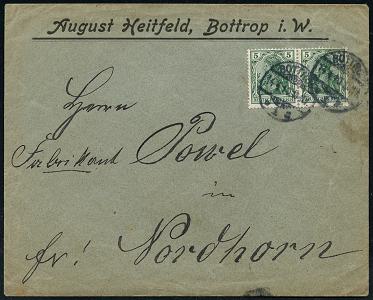 August Heitfeld, Bottrop i. W.
5 5
Herrn
Fabrikant Powel
in
fr! Nordhorn